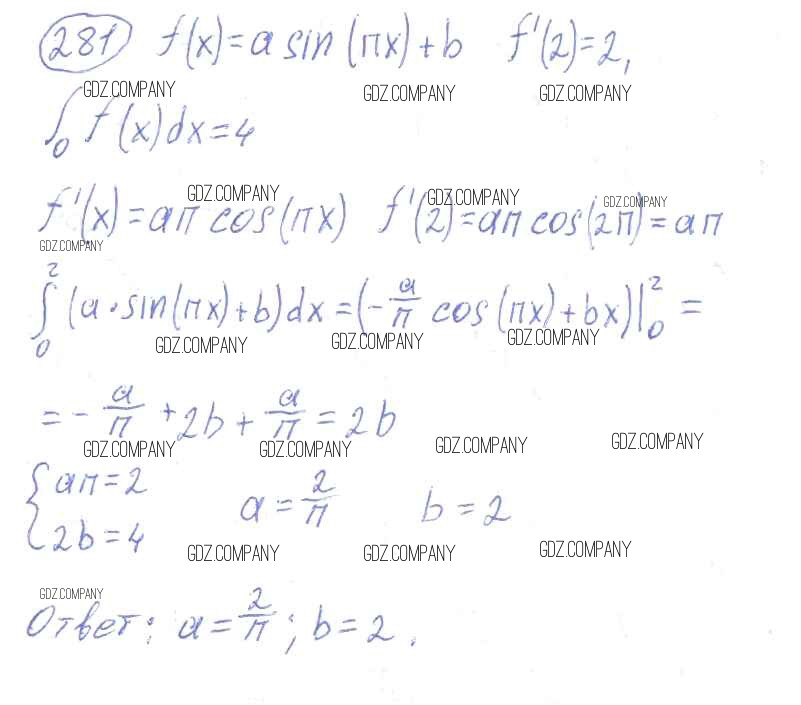 281 f(x) = a sin (πx) + b f'(2) = 2,
GDZ.COMPANY GDZ.COMPANY GDZ.COMPANY
∫₀ f(x)dx = 4
GDZ.COMPANY GDZ.COMPANY GDZ.COMPANY
f'(x) = aπ cos(πx) f'(2) = aπ cos(2π) = aπ
GDZ.COMPANY
∫₀² (a · sin(πx) + b)dx = (-a/π cos (πx) + bx)|₀² =
GDZ.COMPANY GDZ.COMPANY GDZ.COMPANY
= - a/π + 2b + a/π = 2b
GDZ.COMPANY GDZ.COMPANY GDZ.COMPANY GDZ.COMPANY
{ aπ = 2
a = 2/π b = 2
2b = 4
GDZ.COMPANY GDZ.COMPANY GDZ.COMPANY
GDZ.COMPANY
Ответ: a = 2/π; b = 2.